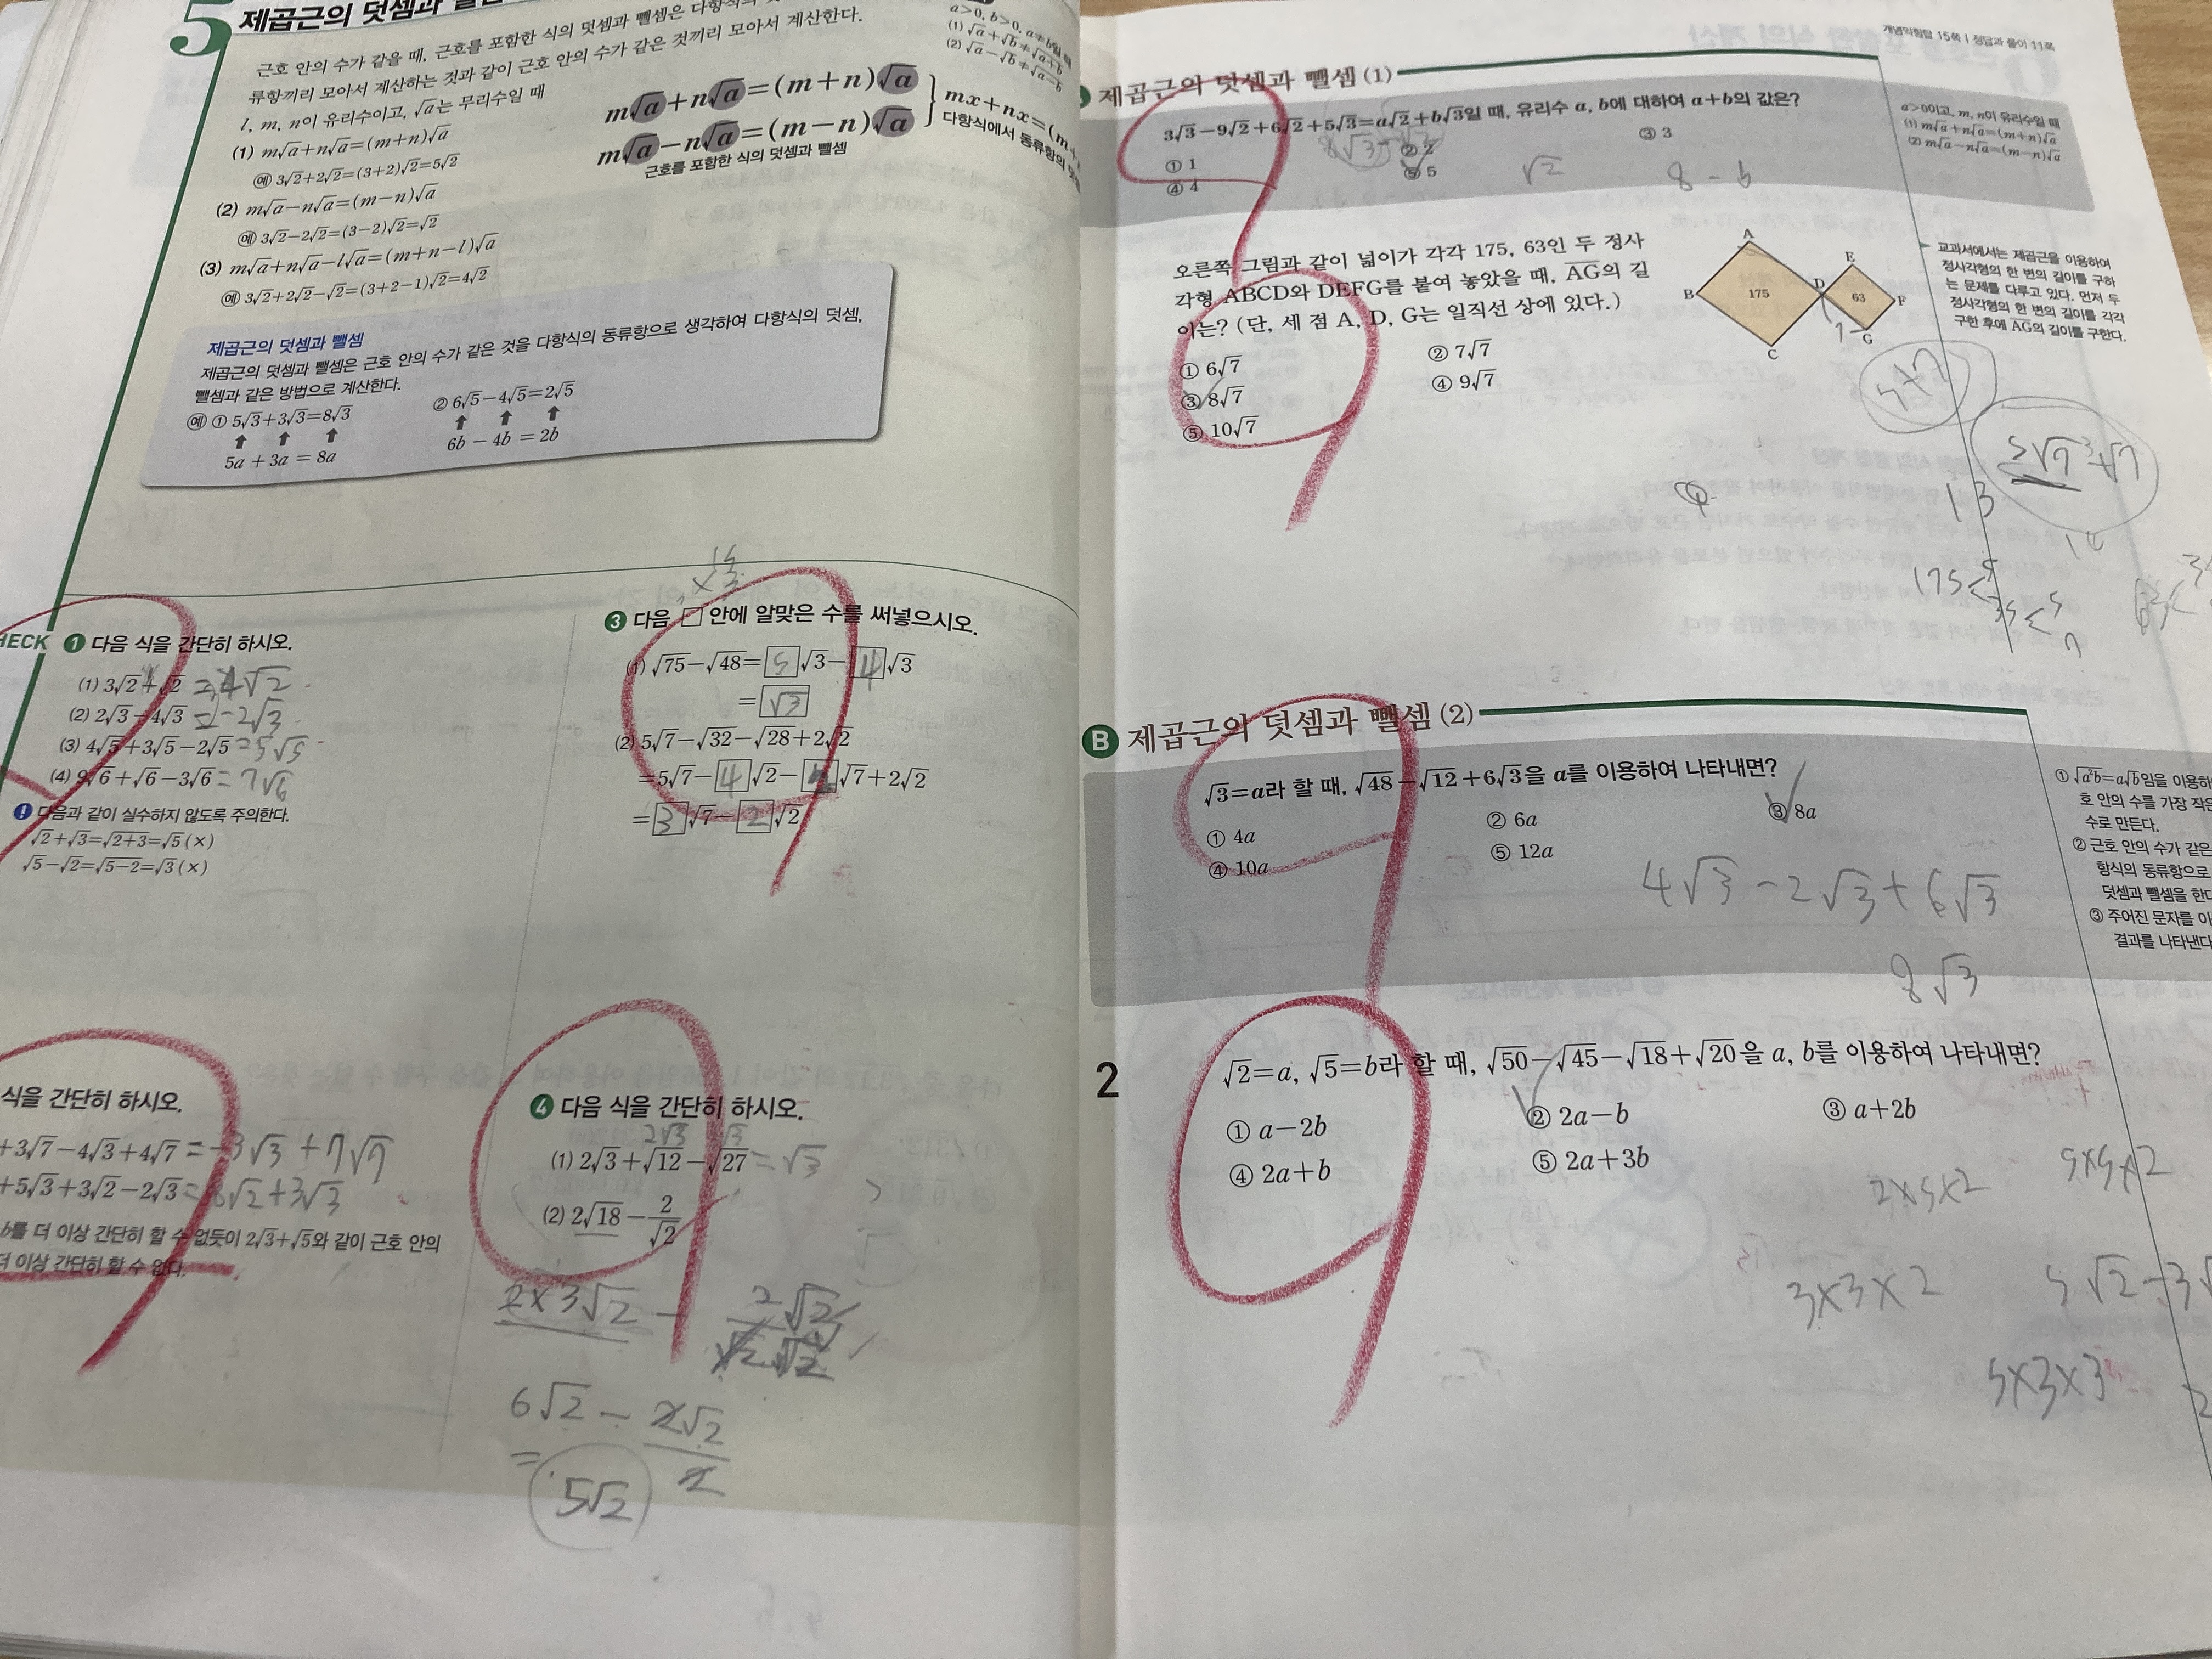 5
제곱근의 덧셈과
근호 안의 수가 같을 때, 근호를 포함한 식의 덧셈과 뺄셈은 다항식의
류항끼리 모아서 계산하는 것과 같이 근호 안의 수가 같은 것끼리 모아서 계산한다.
l, m, n이 유리수이고, √a는 무리수일 때
(1) m√a+n√a=(m+n)√a
예 3√2+2√2=(3+2)√2=5√2
(2) m√a−n√a=(m−n)√a
예 3√2−2√2=(3−2)√2=√2
(3) m√a+n√a−l√a=(m+n−l)√a
예 3√2+2√2−√2=(3+2−1)√2=4√2
m√a+n√a=(m+n)√a
m√a−n√a=(m−n)√a
근호를 포함한 식의 덧셈과 뺄셈
mx+nx=(m+
다항식에서 동류항의
a>0, b>0, a≠b일 때
(1) √a+√b≠√a+b
(2) √a−√b≠√a−b
제곱근의 덧셈과 뺄셈
제곱근의 덧셈과 뺄셈은 근호 안의 수가 같은 것을 다항식의 동류항으로 생각하여 다항식의 덧셈,
뺄셈과 같은 방법으로 계산한다.
예 ① 5√3+3√3=8√3
5a + 3a = 8a
② 6√5−4√5=2√5
6b − 4b = 2b
HECK
1 다음 식을 간단히 하시오.
(1) 3√2+√2 =4√2
(2) 2√3−4√3 =−2√3
(3) 4√5+3√5−2√5 =5√5
(4) 9√6+√6−3√6 =7√6
! 다음과 같이 실수하지 않도록 주의한다.
√2+√3=√2+3=√5 (×)
√5−√2=√5−2=√3 (×)
식을 간단히 하시오.
+3√7−4√3+4√7 =−3√3+7√7
+5√3+3√2−2√3 =8√2+3√3
b를 더 이상 간단히 할 수 없듯이 2√3+√5와 같이 근호 안의
더 이상 간단히 할 수 없다.
3 다음 □ 안에 알맞은 수를 써넣으시오.
(1) √75−√48=5√3−4√3
=√3
(2) 5√7−√32−√28+2√2
=5√7−4√2−2√7+2√2
=3√7−2√2
4 다음 식을 간단히 하시오.
2√3
(1) 2√3+√12−√27 =√3
(2) 2√18−2/√2
2×3√2 − 2√2/√2√2
6√2 − 2√2/2
= 5√2
개념익힘탑 15쪽 | 정답과 풀이 11쪽
제곱근의 덧셈과 뺄셈 (1)
3√3−9√2+6√2+5√3=a√2+b√3일 때, 유리수 a, b에 대하여 a+b의 값은?
① 1
② 2
③ 3
④ 4
⑤ 5
√2
a>0이고, m, n이 유리수일 때
(1) m√a+n√a=(m+n)√a
(2) m√a−n√a=(m−n)√a
오른쪽 그림과 같이 넓이가 각각 175, 63인 두 정사
각형 ABCD와 DEFG를 붙여 놓았을 때, AG의 길
이는? (단, 세 점 A, D, G는 일직선 상에 있다.)
① 6√7
② 7√7
③ 8√7
④ 9√7
⑤ 10√7
A
B
C
D
E
F
G
175
63
교과서에서는 제곱근을 이용하여
정사각형의 한 변의 길이를 구하
는 문제를 다루고 있다. 먼저 두
정사각형의 한 변의 길이를 각각
구한 후에 AG의 길이를 구한다.
5√7 3√7
13
175
B 제곱근의 덧셈과 뺄셈 (2)
√3=a라 할 때, √48−√12+6√3을 a를 이용하여 나타내면?
① 4a
② 6a
③ 8a
④ 10a
⑤ 12a
4√3−2√3+6√3
8√3
① √a²b=a√b임을 이용하
호 안의 수를 가장 작은
수로 만든다.
② 근호 안의 수가 같은
항식의 동류항으로
덧셈과 뺄셈을 한다
③ 주어진 문자를 이
결과를 나타낸다
2
√2=a, √5=b라 할 때, √50−√45−√18+√20을 a, b를 이용하여 나타내면?
① a−2b
② 2a−b
③ a+2b
④ 2a+b
⑤ 2a+3b
5×5×2
2×5×2
3×3×2
5√2−3√
5×3×3